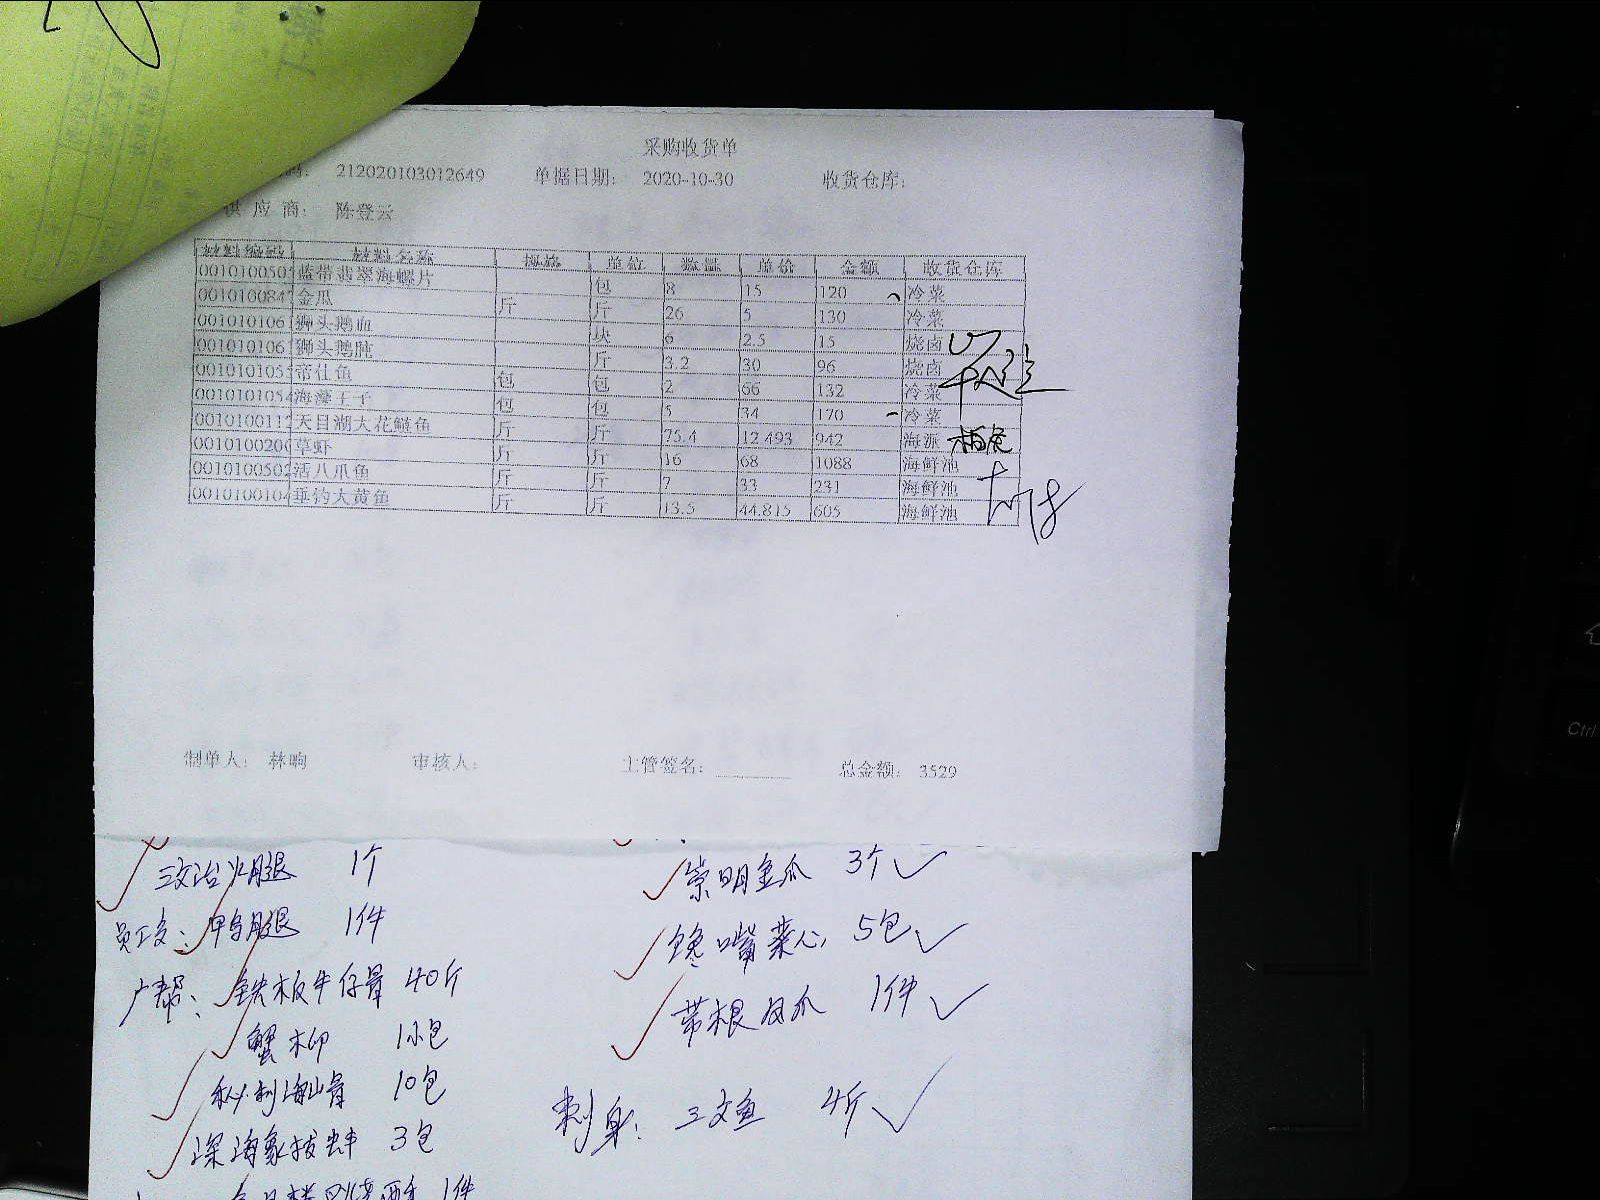 采购收货单
码: 212020103012649 单据日期: 2020-10-30 收货仓库:
供应商: 陈登云
材料编码 材料名称 规格 单位 数量 单价 金额 收货仓库
0010100505 蓝带翡翠海螺片 包 8 15 120 冷菜
001010084 金瓜 斤 斤 26 5 130 冷菜
001010106 狮头鹅血 块 6 2.5 15 烧卤
001010106 狮头鹅肫 斤 3.2 30 96 烧卤
001010105 帝仕鱼 包 包 2 66 132 冷菜
001010105 海藻王子 包 包 5 34 170 冷菜
001010011 天目湖大花鲢鱼 斤 斤 75.4 12.493 942 海派
001010020 草虾 斤 斤 16 68 1088 海鲜池
001010050 活八爪鱼 斤 斤 7 33 231 海鲜池
001010010 垂钓大黄鱼 斤 斤 13.5 44.815 605 海鲜池
制单人: 林晌 审核人: 主管签名: 总金额: 3529
三文治火腿 1个
员工餐: 鸭腿 1件
广帮: 铁板牛仔骨 40斤
蟹柳 1小包
秘制海山骨 10包
深海象拔蚌 3包
1件
崇明金瓜 3个
馋嘴菜心 5包
带根凤爪 1件
刺身: 三文鱼 4斤
Ctrl